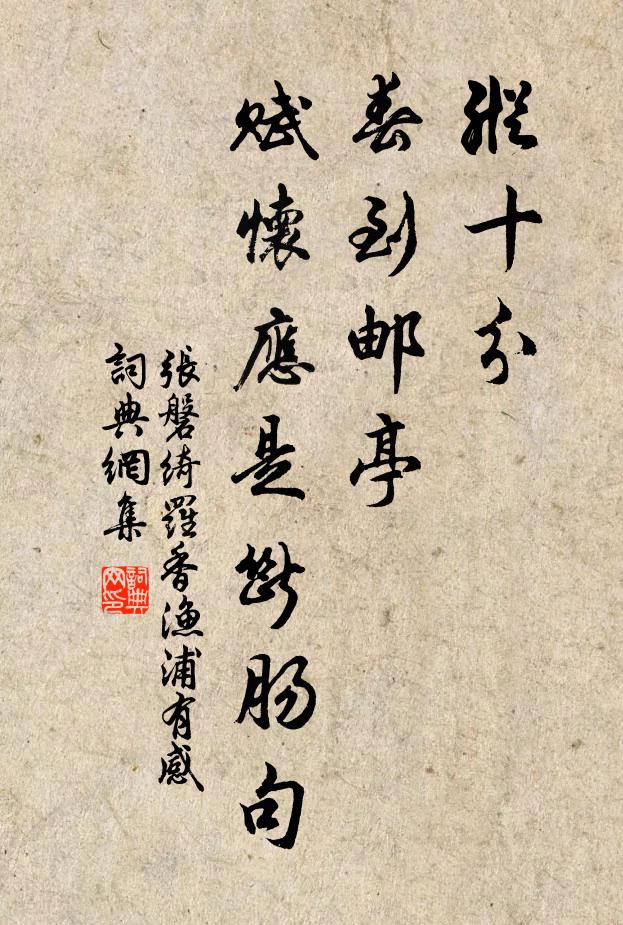 縱十分
春到邮亭
賦懷應是斷肠句
張磐綺羅香漁浦有感
詞典網集
詞典網印